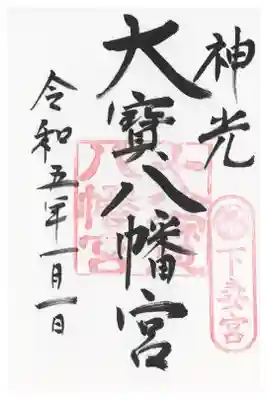 神光
下妻宮
大寳八幡宮
大寳八幡宮
令和五年一月一日